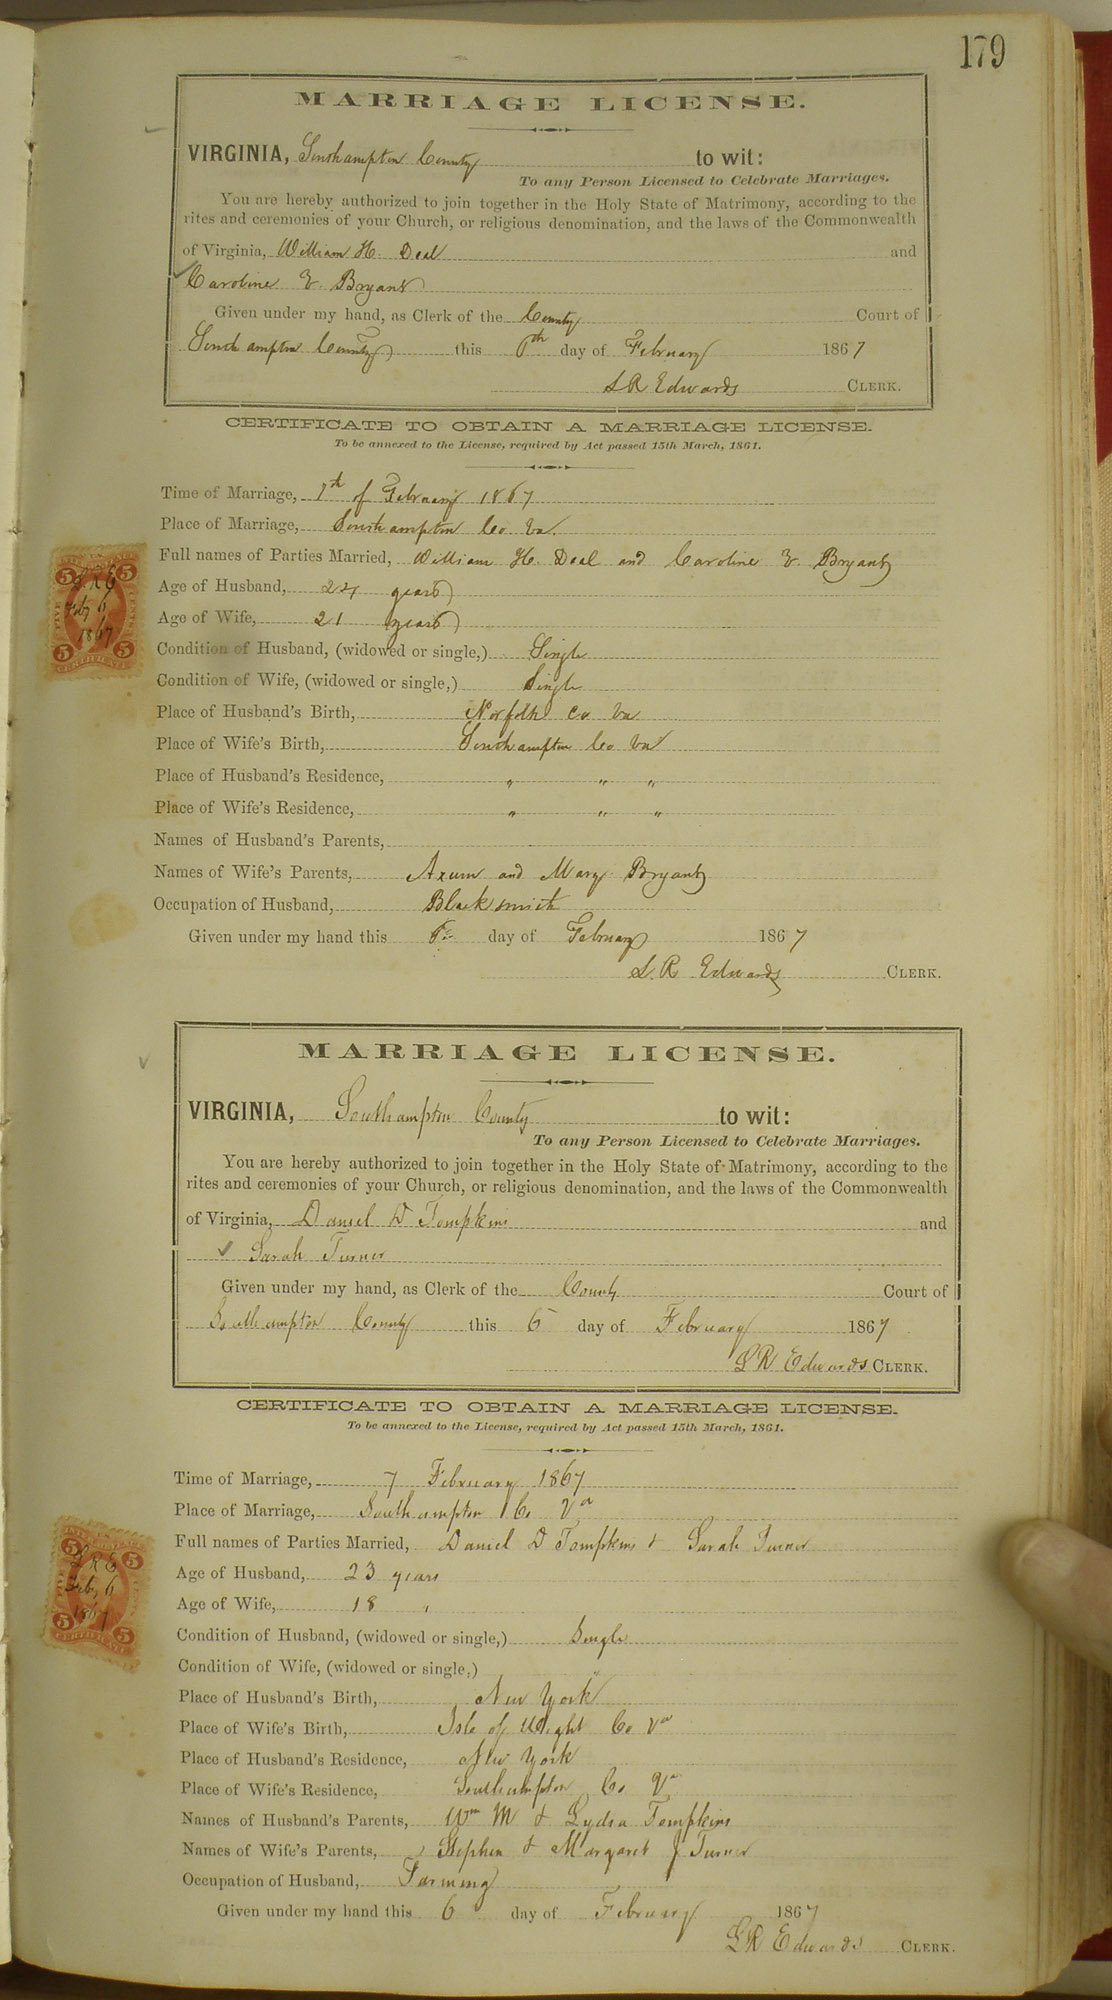 179
MARRIAGE LICENSE.
VIRGINIA, Southampton County to wit:
To any Person Licensed to Celebrate Marriages.
You are hereby authorized to join together in the Holy State of Matrimony, according to the
rites and ceremonies of your Church, or religious denomination, and the laws of the Commonwealth
of Virginia, William H. Deal and
Caroline E. Bryant
Given under my hand, as Clerk of the County Court of
Southampton County this 6th day of February 1867
L R Edwards CLERK.
CERTIFICATE TO OBTAIN A MARRIAGE LICENSE.
To be annexed to the License, required by Act passed 15th March, 1861.
Time of Marriage, 7th of February 1867
Place of Marriage, Southampton Co. Va.
Full names of Parties Married, William H. Deal and Caroline E. Bryant
Age of Husband, 24 years
Age of Wife, 21 years
Condition of Husband, (widowed or single,) Single
Condition of Wife, (widowed or single,) Single
Place of Husband's Birth, Norfolk Co Va
Place of Wife's Birth, Southampton Co Va
Place of Husband's Residence, " " "
Place of Wife's Residence, " " "
Names of Husband's Parents,
Names of Wife's Parents, Axum and Mary Bryant
Occupation of Husband, Blacksmith
Given under my hand this 6th day of February 1867
L. R Edwards CLERK.
5 5
L R E
Feby 6
1867
5 5
CERTIFICATE
MARRIAGE LICENSE.
VIRGINIA, Southampton County to wit:
To any Person Licensed to Celebrate Marriages.
You are hereby authorized to join together in the Holy State of Matrimony, according to the
rites and ceremonies of your Church, or religious denomination, and the laws of the Commonwealth
of Virginia, Daniel D Tompkins and
Sarah Turner
Given under my hand, as Clerk of the County Court of
Southampton County this 6 day of February 1867
L R Edwards CLERK.
CERTIFICATE TO OBTAIN A MARRIAGE LICENSE.
To be annexed to the License, required by Act passed 15th March, 1861.
Time of Marriage, 7 February 1867
Place of Marriage, Southampton Co Va
Full names of Parties Married, Daniel D Tompkins & Sarah Turner
Age of Husband, 23 years
Age of Wife, 18 "
Condition of Husband, (widowed or single,) Single
Condition of Wife, (widowed or single,) "
Place of Husband's Birth, New York
Place of Wife's Birth, Isle of Wight Co Va
Place of Husband's Residence, New York
Place of Wife's Residence, Southampton Co Va
Names of Husband's Parents, Wm M & Lydia Tompkins
Names of Wife's Parents, Stephen & Margaret J Turner
Occupation of Husband, Farming
Given under my hand this 6 day of February 1867
L R Edwards CLERK.
5 5
L R E
Feby 6
1867
5 5
CERTIFICATE